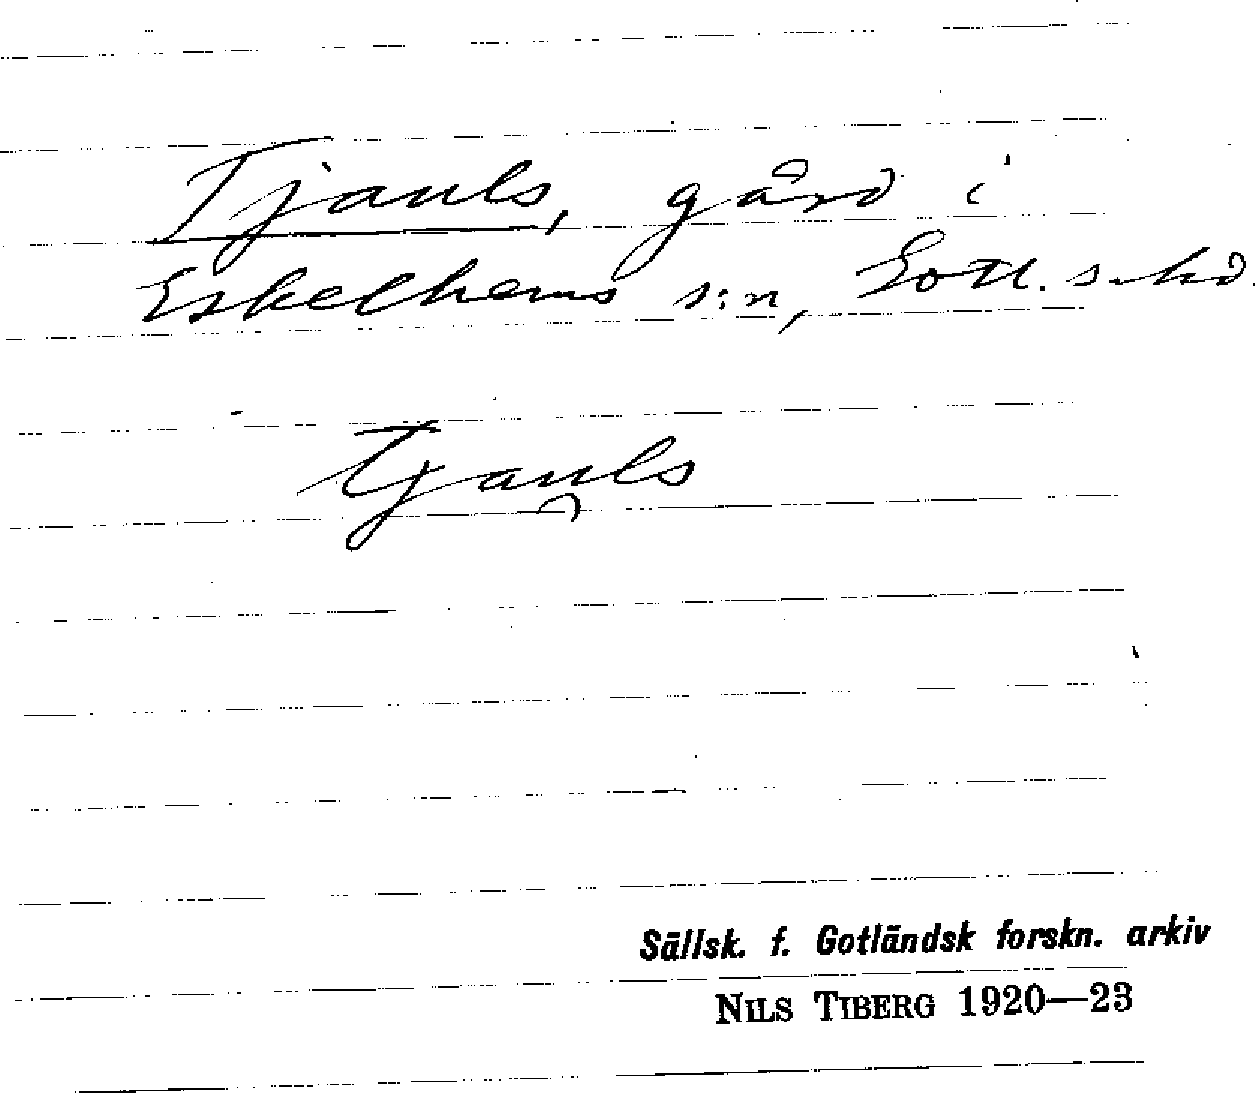 Tjauls, gård i
Eskelhems s:n, Gotl. s. hd.
tjau̯ls
Sällsk. f. Gotländsk forskn. arkiv
NILS TIBERG 1920—23